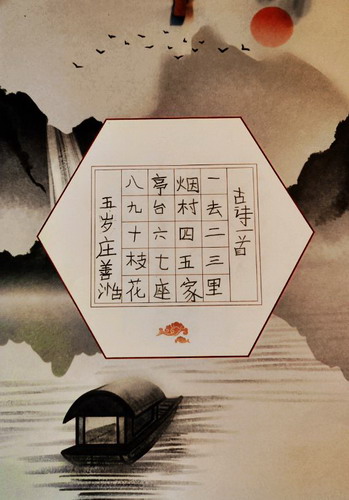 古诗一首
一去二三里
烟村四五家
亭台六七座
八九十枝花
五岁庄善